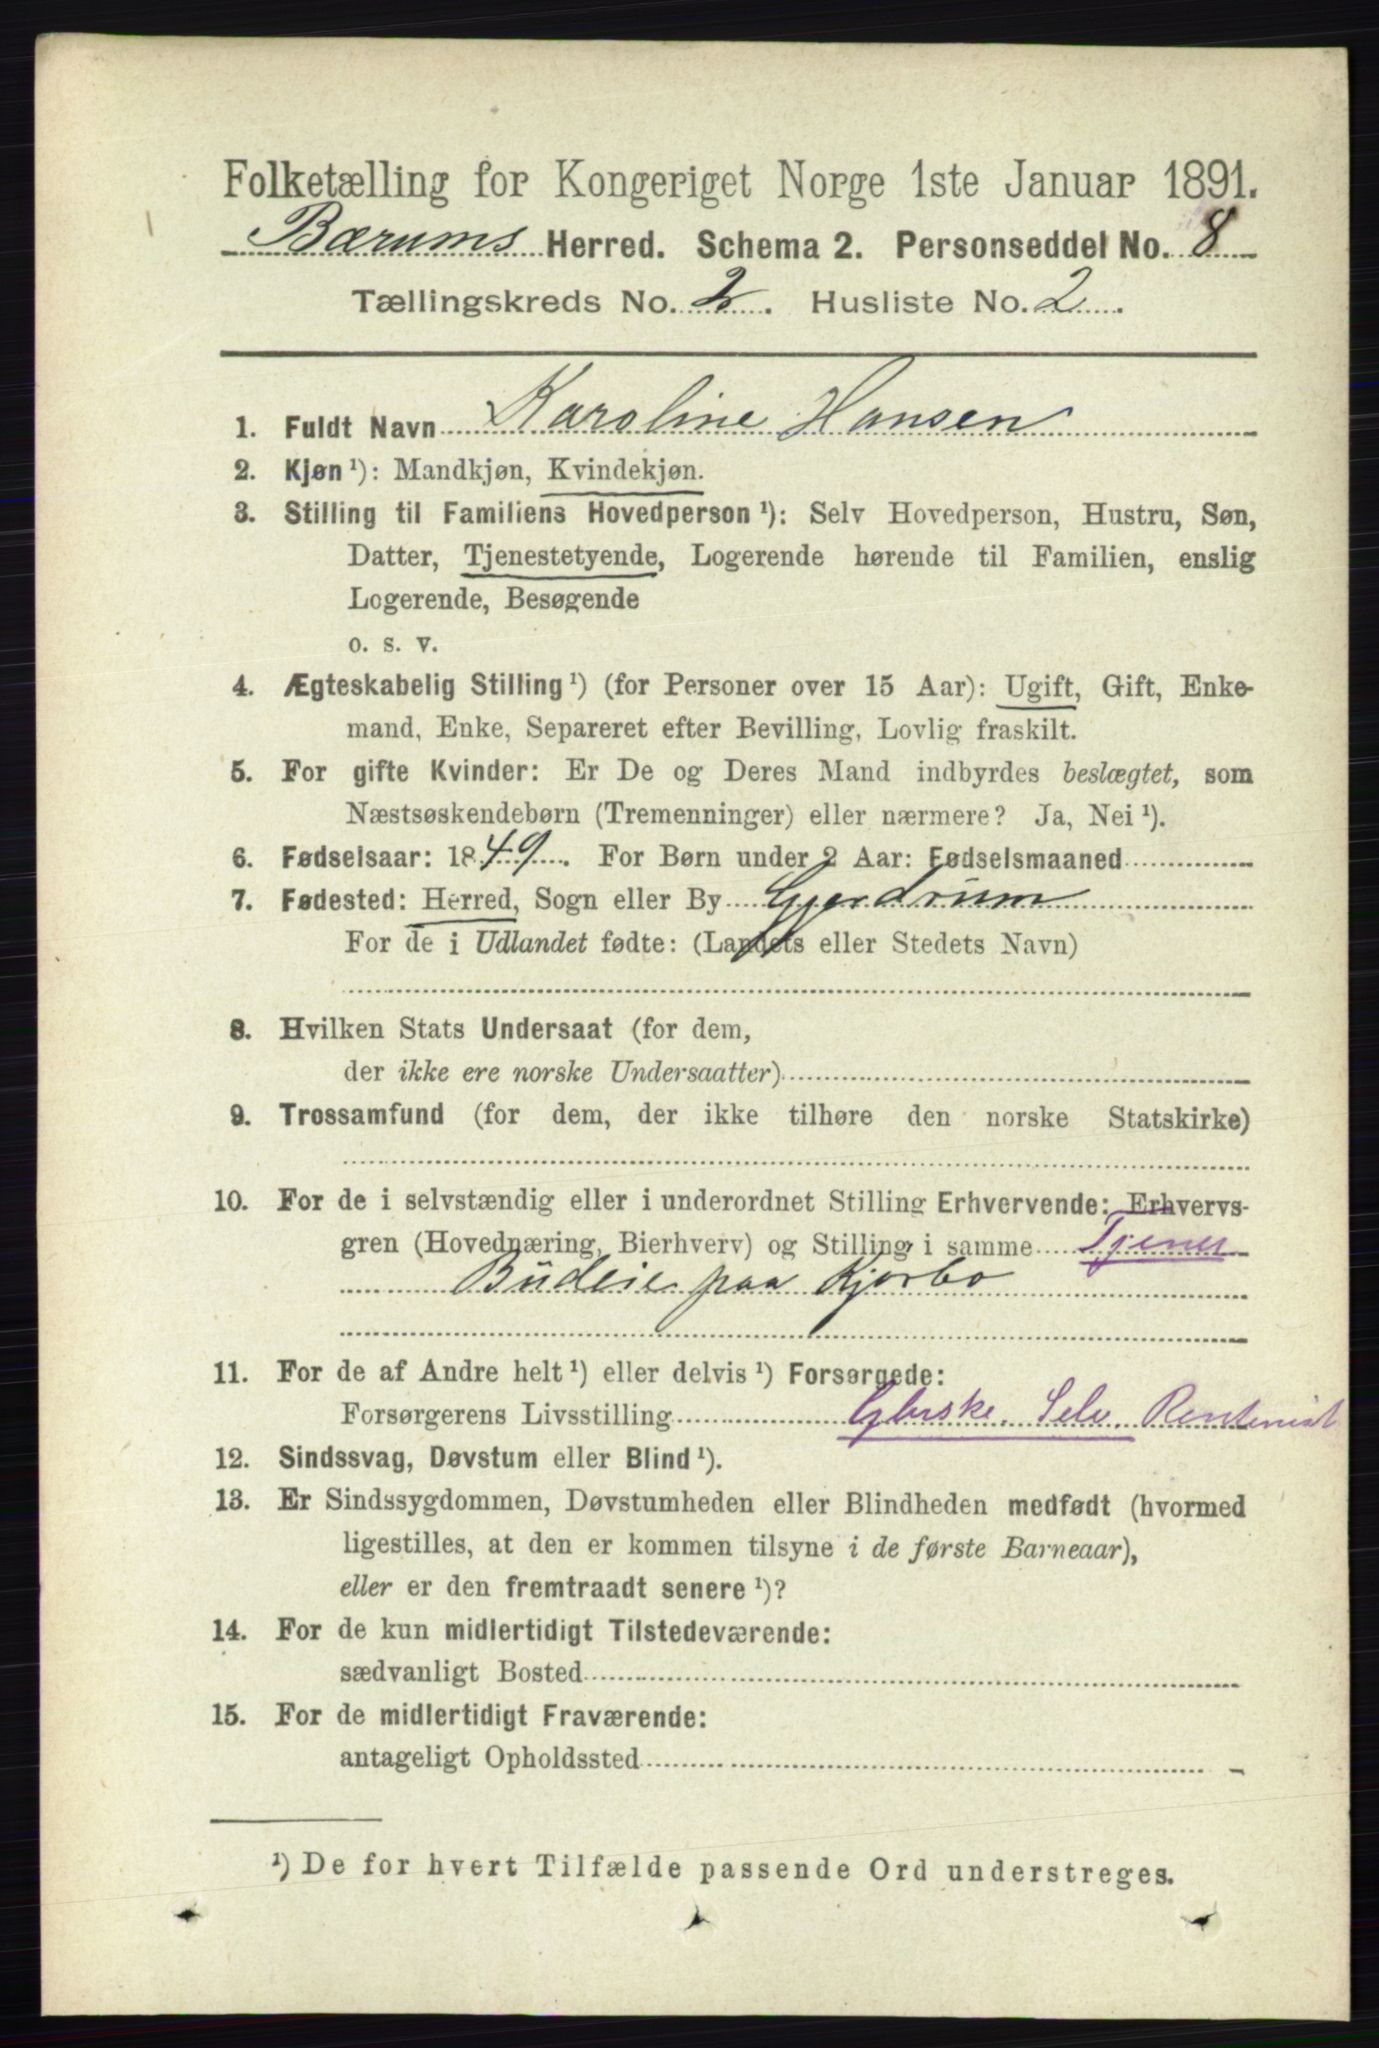 Folketælling for Kongeriget Norge 1ste Januar 1891.
Bærums Herred. Schema 2. Personseddel No. 8
Tællingskreds No. 2. Husliste No. 2.
1. Fuldt Navn Karoline Hansen
2. Kjøn ¹): Mandkjøn, Kvindekjøn.
3. Stilling til Familiens Hovedperson ¹): Selv Hovedperson, Hustru, Søn,
Datter, Tjenestetyende, Logerende hørende til Familien, enslig
Logerende, Besøgende
o. s. v.
4. Ægteskabelig Stilling ¹) (for Personer over 15 Aar): Ugift, Gift, Enke-
mand, Enke, Separeret efter Bevilling, Lovlig fraskilt.
5. For gifte Kvinder: Er De og Deres Mand indbyrdes beslægtet, som
Næstsøskendebørn (Tremenninger) eller nærmere? Ja, Nei ¹).
6. Fødselsaar: 1849. For Børn under 2 Aar: Fødselsmaaned
7. Fødested: Herred, Sogn eller By Gjerdrum
For de i Udlandet fødte: (Landets eller Stedets Navn)
8. Hvilken Stats Undersaat (for dem,
der ikke ere norske Undersaatter)
9. Trossamfund (for dem, der ikke tilhøre den norske Statskirke)
10. For de i selvstændig eller i underordnet Stilling Erhvervende: Erhvervs-
gren (Hovednæring, Bierhverv) og Stilling i samme Tjener
Budeie paa Kjørbo
11. For de af Andre helt ¹) eller delvis ¹) Forsørgede:
Forsørgerens Livsstilling Selv Rentenist
12. Sindssvag, Døvstum eller Blind ¹).
13. Er Sindssygdommen, Døvstumheden eller Blindheden medfødt (hvormed
ligestilles, at den er kommen tilsyne i de første Barneaar),
eller er den fremtraadt senere ¹)?
14. For de kun midlertidigt Tilstedeværende:
sædvanligt Bosted
15. For de midlertidigt Fraværende:
antageligt Opholdssted
¹) De for hvert Tilfælde passende Ord understreges.